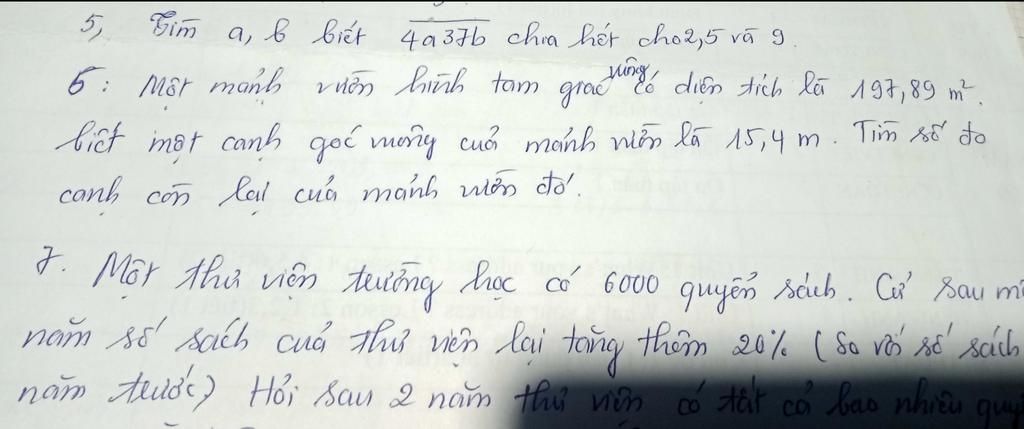 5, Tìm a, b biết 4a37b chia hết cho 2, 5 và 9.
6: Một mảnh vườn hình tam giác vuông có diện tích là 197,89 m².
biết một cạnh góc vuông của mảnh vườn là 15,4 m. Tìm số đo
cạnh còn lại của mảnh vườn đó.
7. Một thư viện trường học có 6000 quyển sách. Cứ sau
năm số sách của thư viện lại tăng thêm 20% (So với số sách
năm trước) Hỏi sau 2 năm thư viện có tất cả bao nhiêu